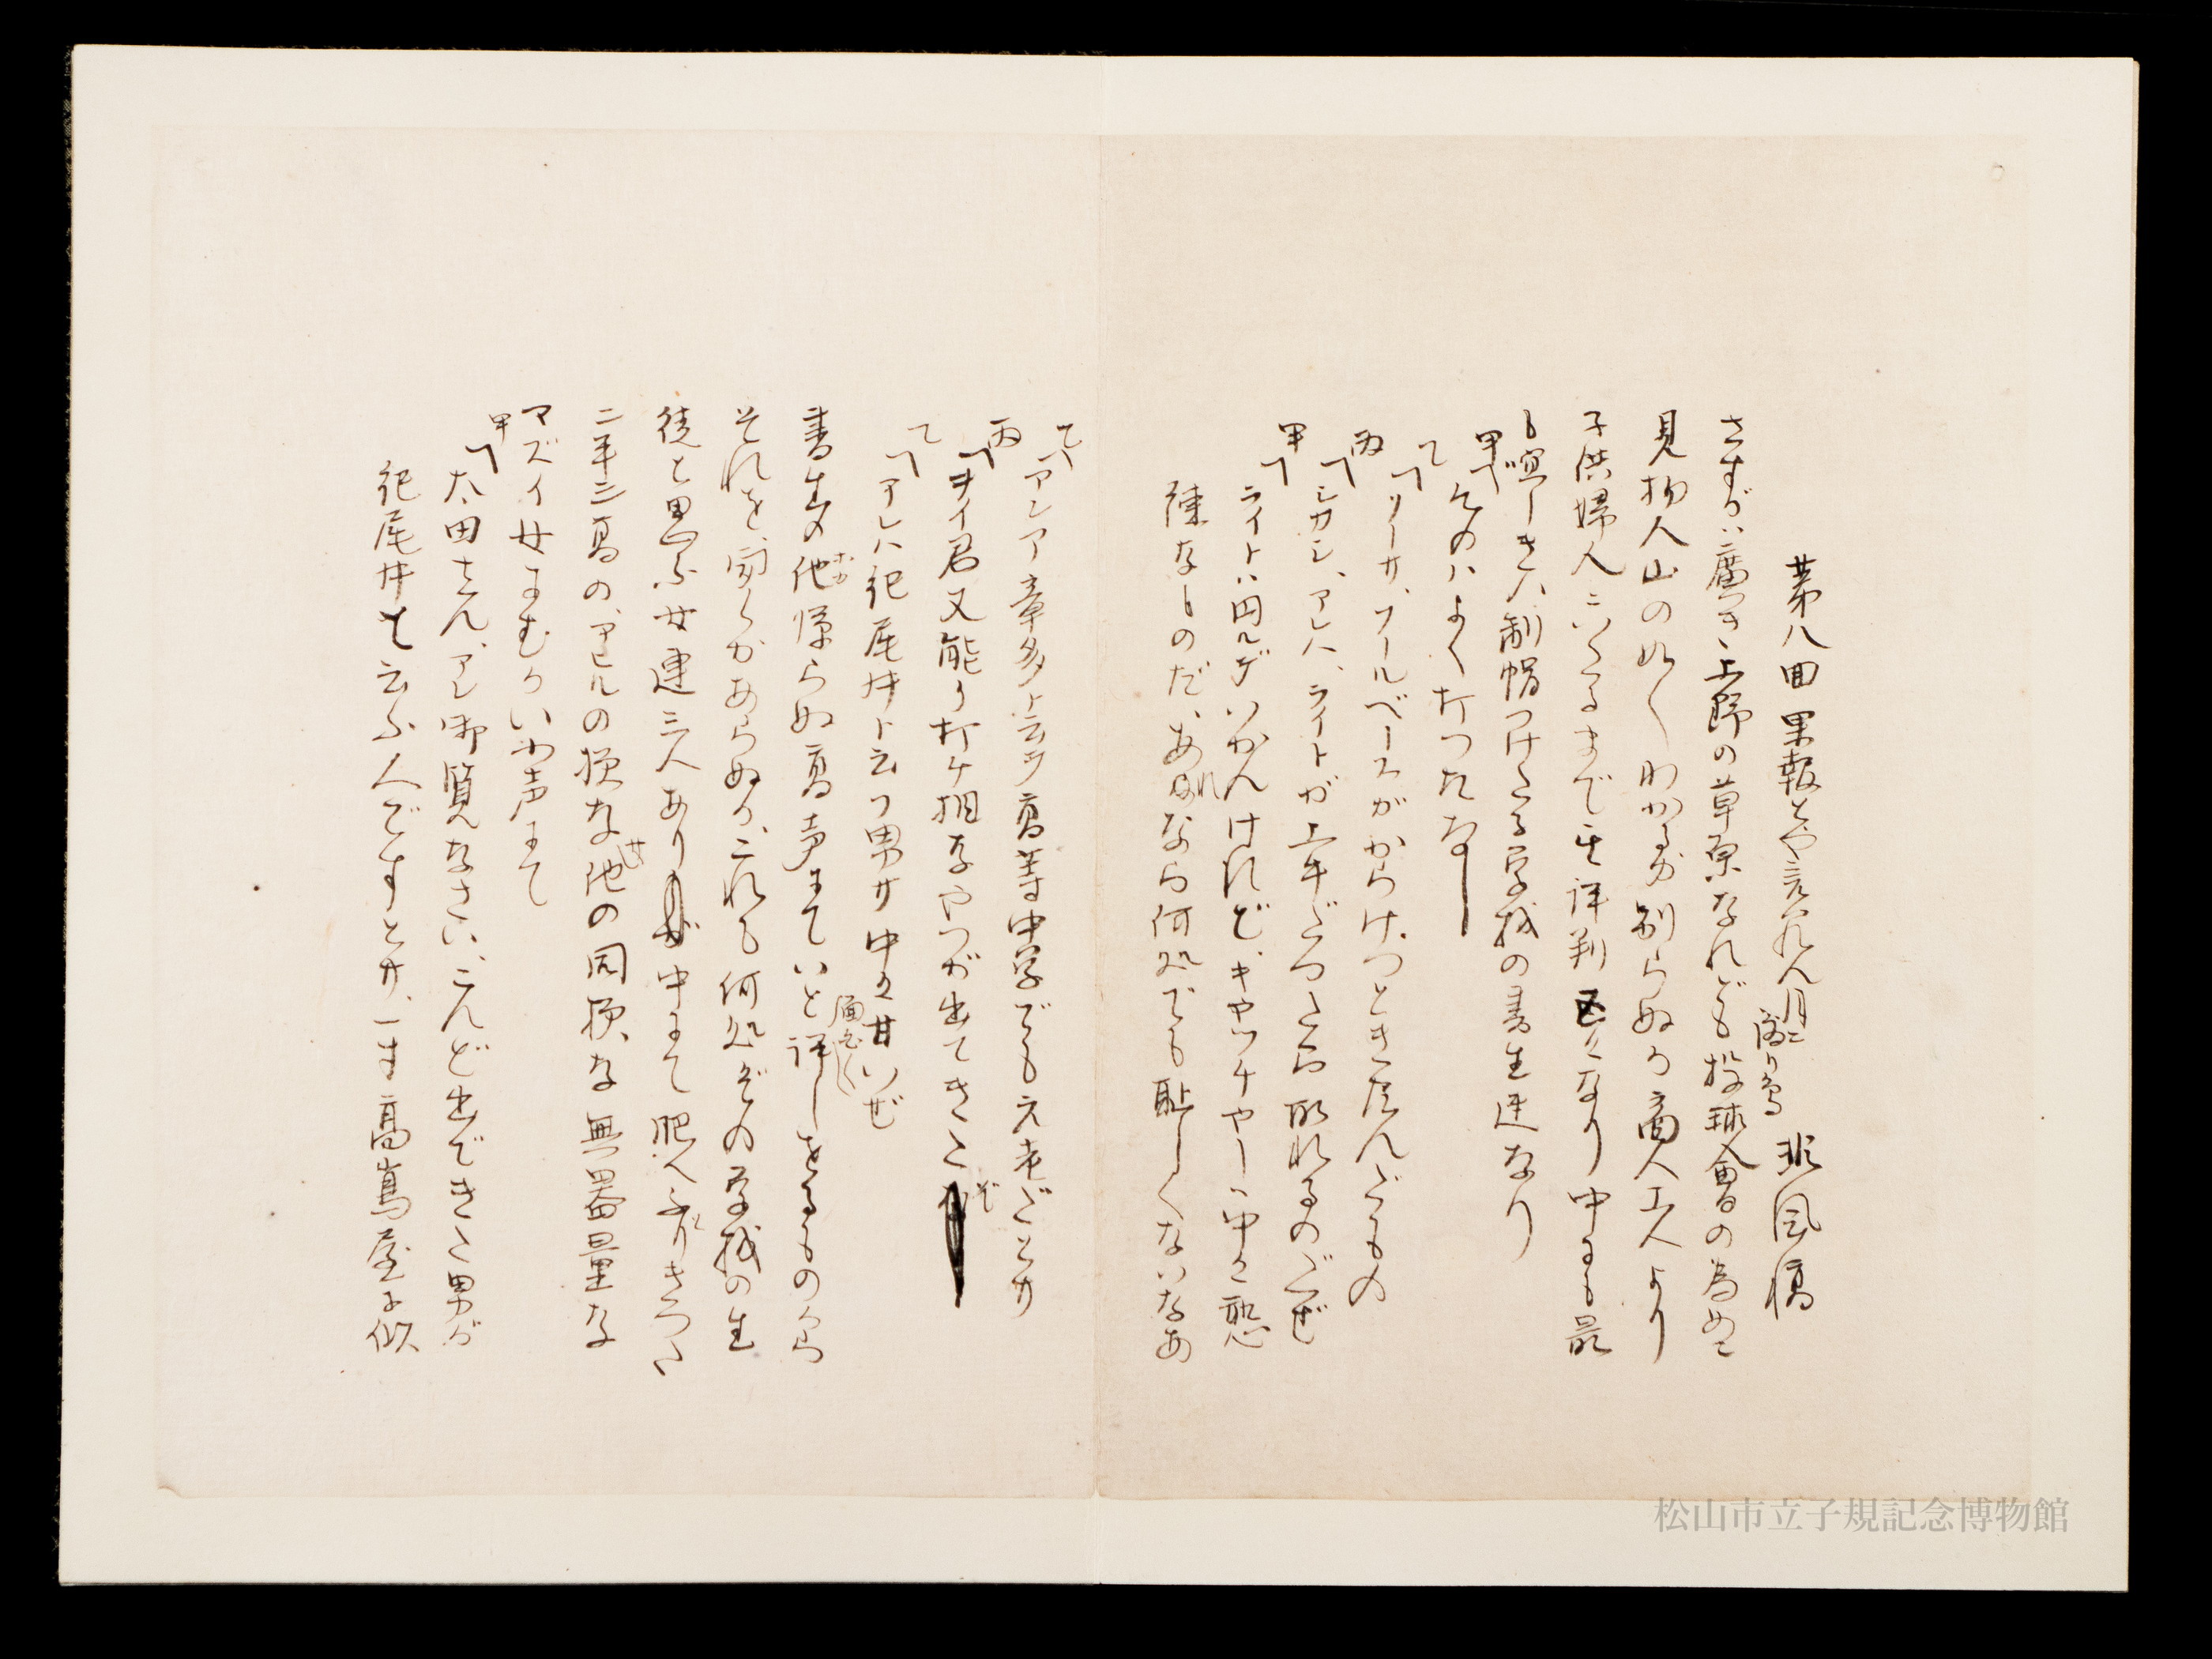 第八回 果報とや言はれん月に鳴り鳥 非風稿
さすがに廣き上野の草原なれども投球會の為めに
見物人山の如くわかるか判らぬか商人工人より
子供婦人にいたるまで其評判区々なり中にも最
も喧しきハ制帽つけたる学校の書生連なり
甲「そのハよく打つたなー
乙「ソーサ、フールベースがからけつときたんだもの
丙「シカシ、アレハ、ライトが上手だつたら取れるのだぜ
甲「ライトハ円ルデいかんけれど、キヤツチヤーハ中々熟
練なものだ、あれなら何処でも恥しくないなあ
乙「アレア章多ト云フ高等中学でも元老ださうサ
丙「オイ君又能く打ケ相なやつが出てきたぞ
乙「アレハ紀尾井ト云フ男サ中々甘いぜ
書生の他憚らぬ高声にていと面白く評しをるものから
それを聞くかあらぬか、これも何処ぞの学校の生
徒と思ふ女連三人あり中にて肥へふとりきつい
二羊三高の、アヒルの様な池の同様な無器量な
マズイ女にむかい小声にて
甲「太田さん、アレ御覧なさい、こんど出てきた男が
紀尾井と云ふ人ですとサ、一寸高嶌屋に似
松山市立子規記念博物館